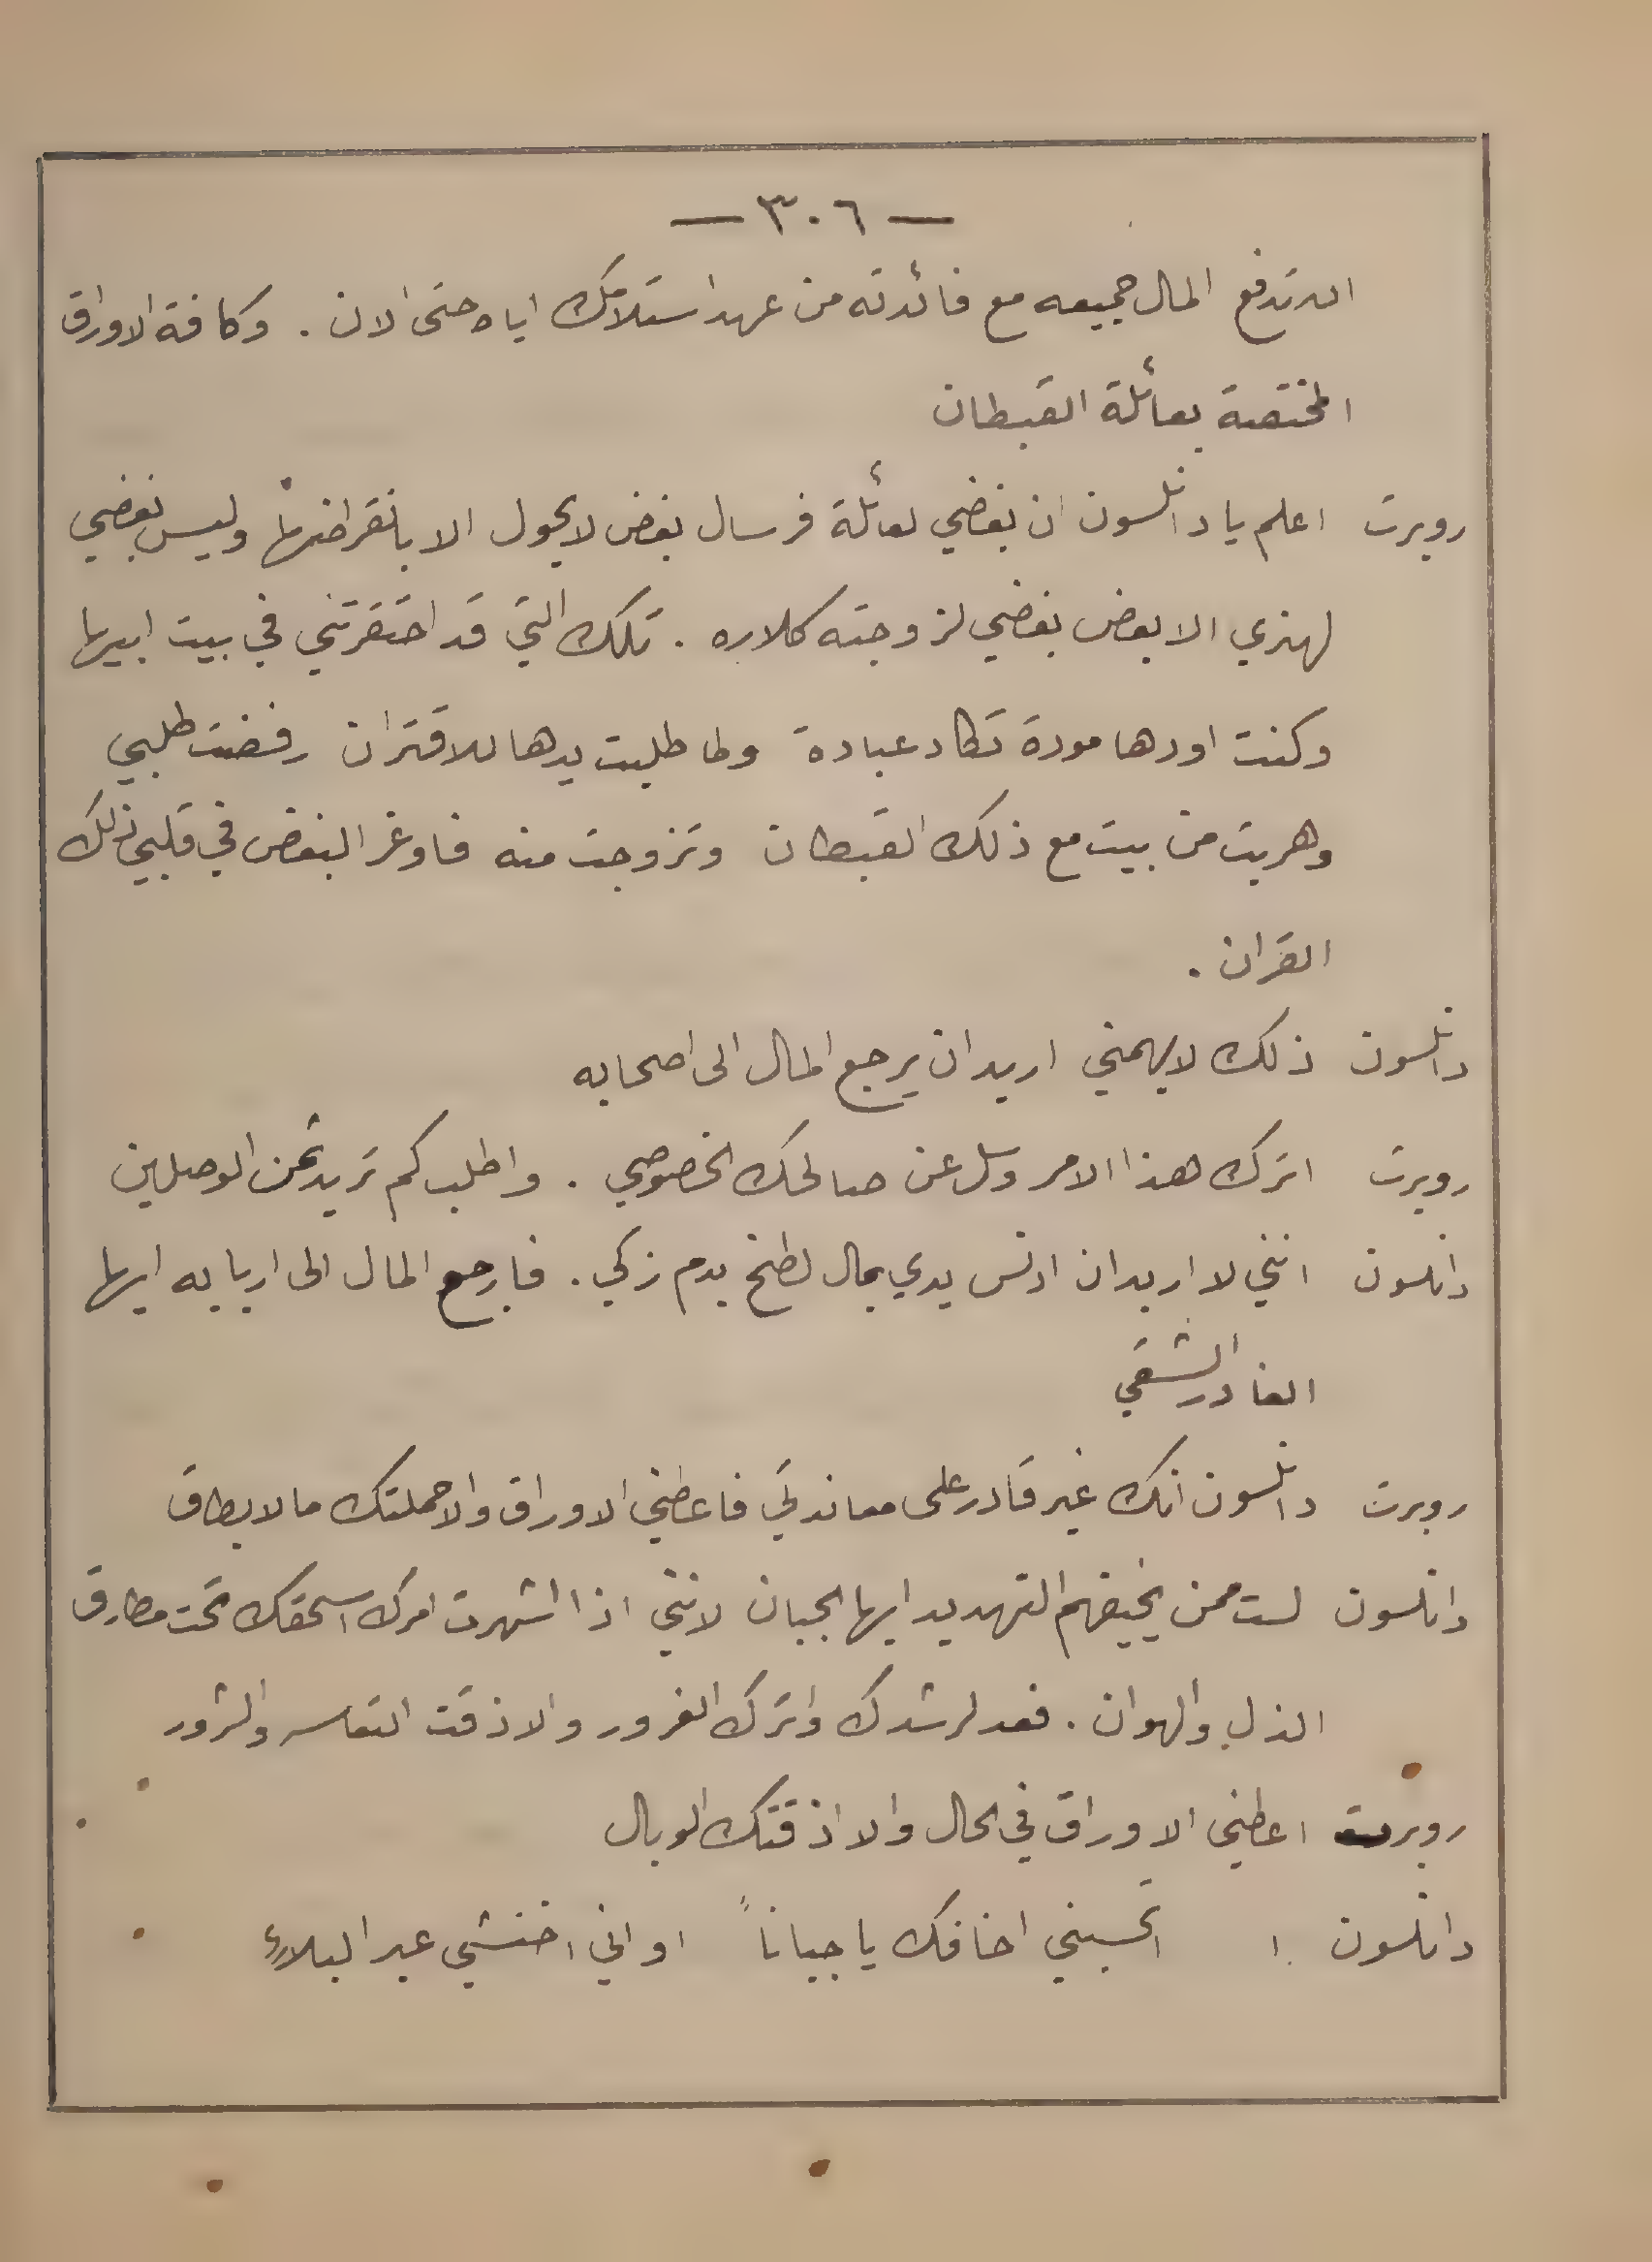 — ٣٠٦ —
ان تدفع المال جميعه مع فائدته من عهد استلامك اياه حتى الان . وكافة الاوراق
المختصة بعائلة القبطان
روبرت اعلم يا دانلسون ان بغضي لعائلة فرسال بغض لا يحول الا بانقراضها وليس بغضي
لهنري الا بعض بغضي لزوجته كلاره . تلك التي قد احتقرتني في بيت ابيها
وكنت اودها مودة تكاد عبادة ولما طلبت يدها للاقتران رفضت طلبي
وهربت من بيت مع ذلك القبطان وتزوجت منه فاوغر البغض في قلبي ذلك
القران .
دانلسون ذلك لا يهمني اريد ان يرجع المال الى اصحابه
روبرت اترك هذا الامر وسل عن صالحك الخصوصي . واطلب كم تريد ثمن الوصلين
دانلسون انني لا اريد ان ادنس يدي بمال لطخ بدم زكي . فارجع المال الى اربابه ايها
الغادر الشقي
روبرت دانلسون انك غير قادر على معاندتي فاعطني الاوراق والا حملتك ما لا يطاق
دانلسون لست ممن يخيفهم التهديد ايها الجبان لانني اذا اشهرت امرك اسحقك تحت مطارق
الذل والهوان . فعد لرشدك واترك الغرور والا ذقت التعاسه والشرور
روبرت اعطني الاوراق في الحال والا اذقتك الوبال
دانلسون اتحسبني اخافك يا جباناً او اني اختشي عبر البلاء